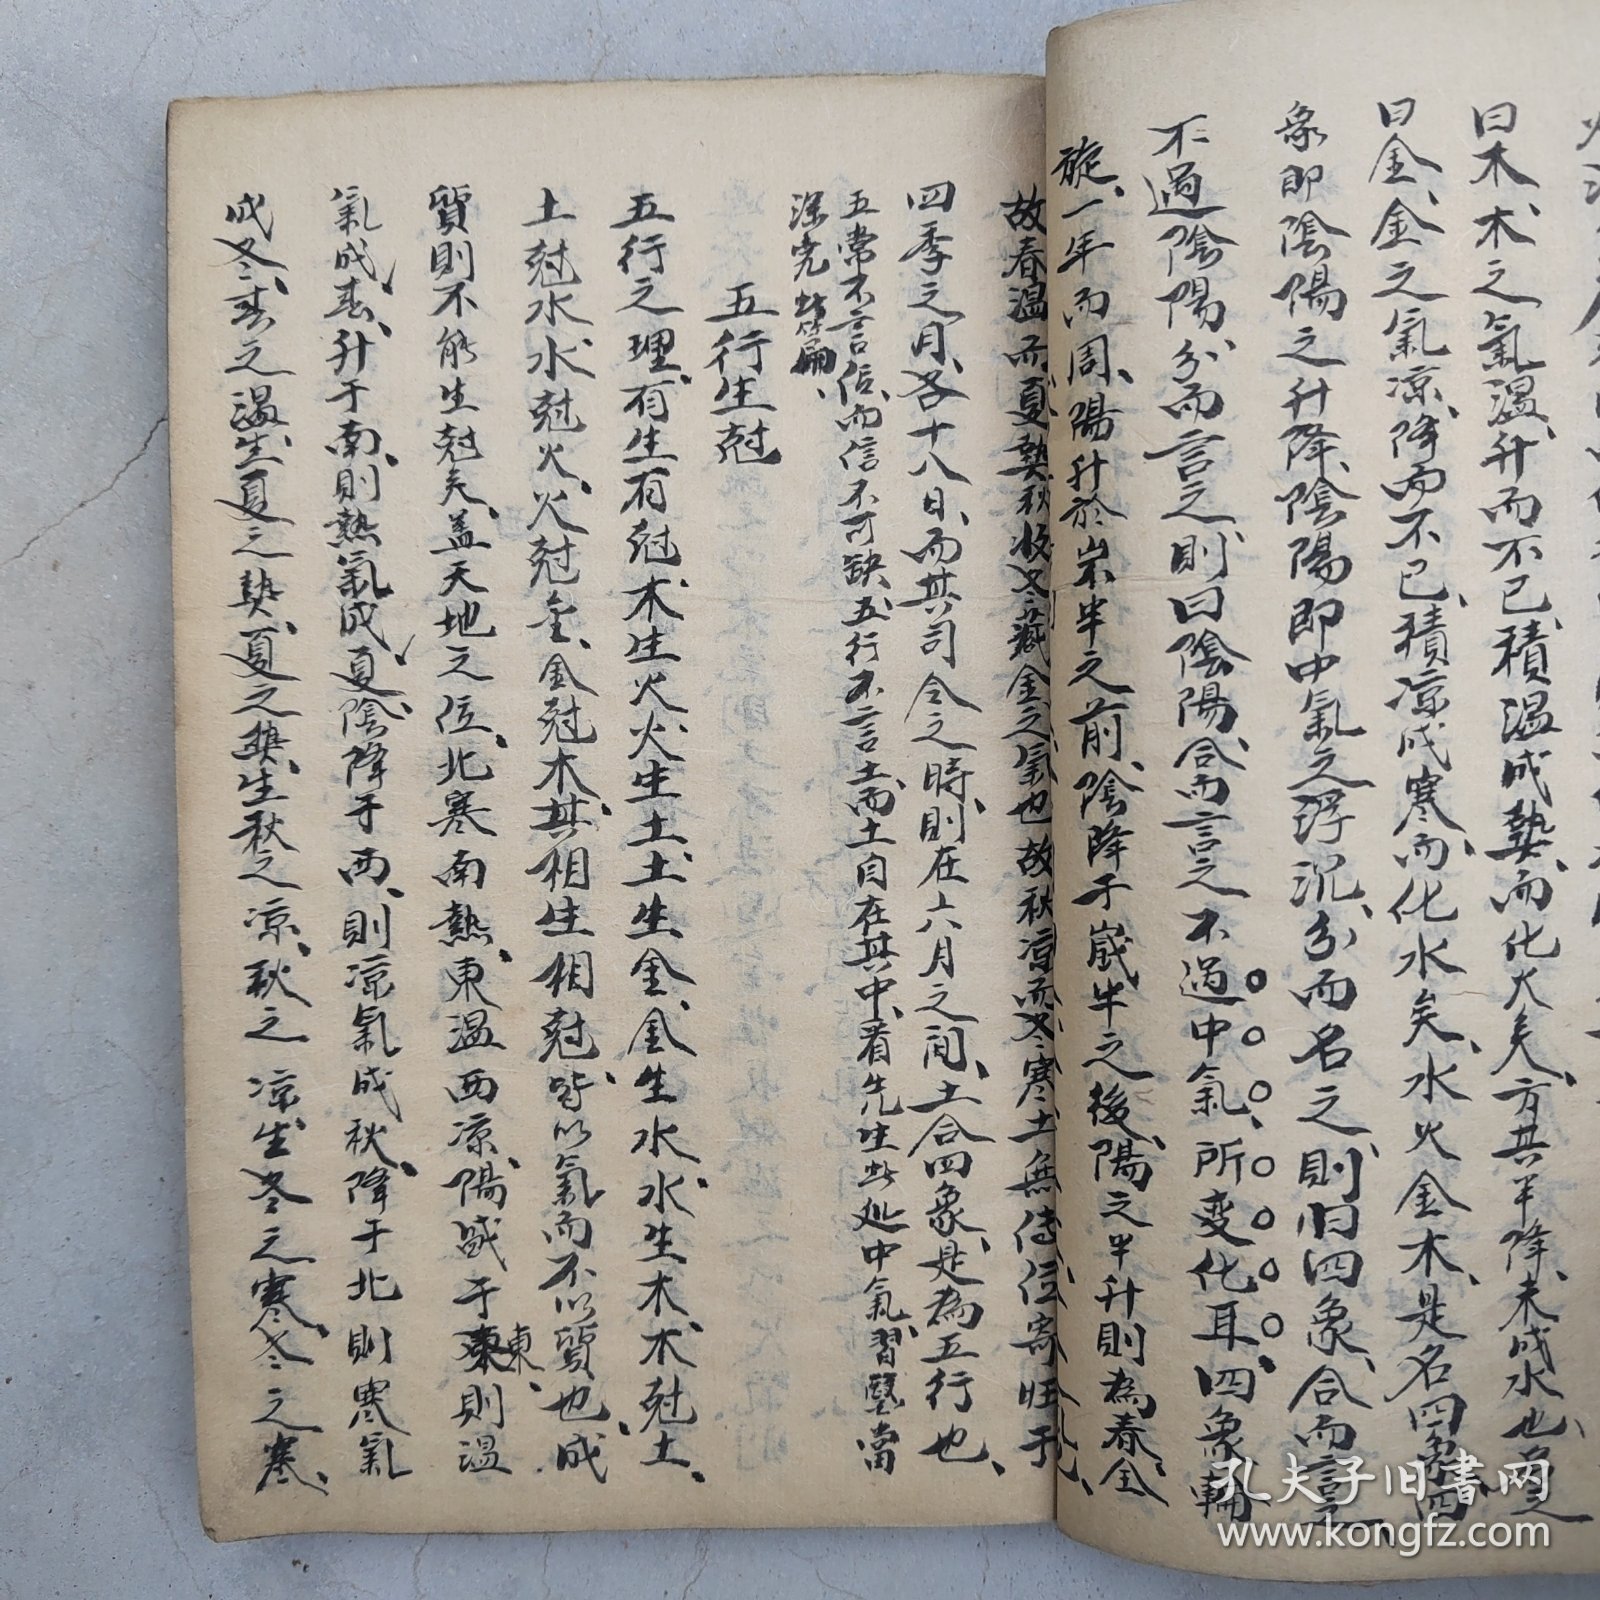 曰木、木之氣溫、升而不已、積溫成𤍠、而化火矣、方其半降、未成水也、
曰金、金之氣凉、降而不已、積凉成寒、而化水矣、水火金木、是名四象、四
象即陰陽之升降、陰陽即中氣之浮沉、分而名之、則曰四象、合而言之
不過陰陽、分而言之、則曰陰陽、合而言之不過中氣、所变化耳、四象輪
旋、一年而周、陽升於嵗半之前、陰降于嵗半之後、陽之半升則為春、全
故春溫而夏𤍠、秋收冬藏、金之氣也、故秋凉而冬寒、土無專位、寄旺于
四季之月、各十八日、而其司令之時、則在六月之間、土合四象、是為五行也、
五常不言信、而信不可缺、五行不言土、而土自在其中、看先生此处中氣、習醫當
深究此篇、
五行生尅
五行之理、有生有尅、木生火、火生土、土生金、金生水、水生木、木尅土、
土尅水、水尅火、火尅金、金尅木、其相生相尅、皆以氣而不以質也、成
質則不能生尅矣、盖天地之位、北寒南熱、東溫西凉、陽盛于東、則溫
東
氣成春、升于南、則熱氣成夏、陰降于西、則凉氣成秋、降于北則寒氣
成冬、春之溫生夏之𤍠、夏之𤍠生秋之凉、秋之凉生冬之寒、冬之寒、
孔夫子旧书网
www.kongfz.com